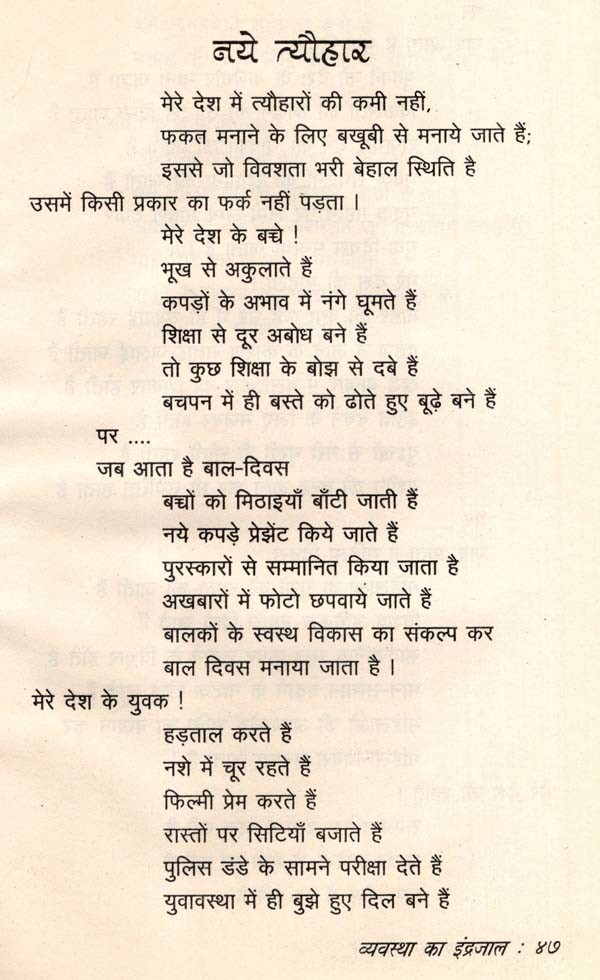 नये त्यौहार
मेरे देश में त्यौहारों की कमी नहीं,
फकत मनाने के लिए बखूबी से मनाये जाते हैं;
इससे जो विवशता भरी बेहाल स्थिति है
उसमें किसी प्रकार का फर्क नहीं पड़ता ।
मेरे देश के बच्चे !
भूख से अकुलाते हैं
कपड़ों के अभाव में नंगे घूमते हैं
शिक्षा से दूर अबोध बने हैं
तो कुछ शिक्षा के बोझ से दबे हैं
बचपन में ही बस्ते को ढोते हुए बूढ़े बने हैं
पर ....
जब आता है बाल-दिवस
बच्चों को मिठाइयाँ बाँटी जाती हैं
नये कपड़े प्रेझेंट किये जाते हैं
पुरस्कारों से सम्मानित किया जाता है
अखबारों में फोटो छपवाये जाते हैं
बालकों के स्वस्थ विकास का संकल्प कर
बाल दिवस मनाया जाता है ।
मेरे देश के युवक !
हड़ताल करते हैं
नशे में चूर रहते हैं
फिल्मी प्रेम करते हैं
रास्तों पर सिटियाँ बजाते हैं
पुलिस डंडे के सामने परीक्षा देते हैं
युवावस्था में ही बुझे हुए दिल बने हैं
व्यवस्था का इंद्रजाल : ४७